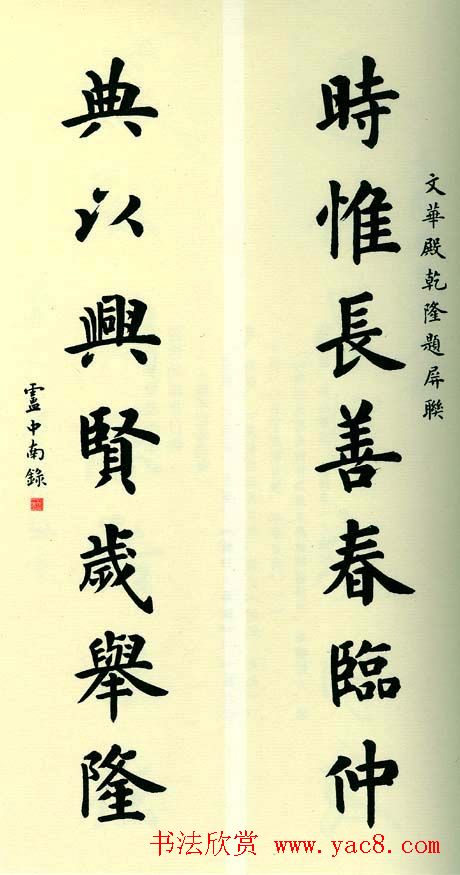 文華殿乾隆題屏聯
時惟長善春臨仲
典以興賢歲舉隆
盧中南錄
书法欣赏 www.yac8.com